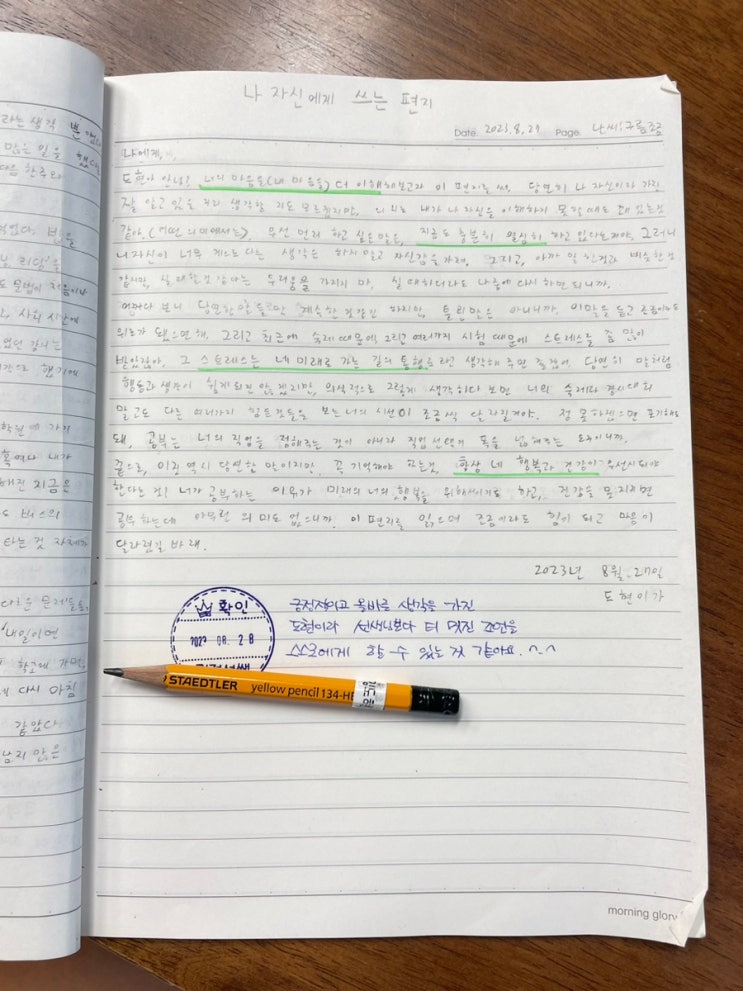 나 자신에게 쓰는 편지
Date. 2023.8.27 Page. 날씨:구름조금
나에게,
도현아 안녕? 너의 마음을(내 마음을) 더 이해해보고자 이 편지를 써. 당연히 나 자신이라 가장
잘 알고 있을 거라 생각할 지도 모르겠지만, 의외로 내가 나 자신을 이해하지 못할 때도 꽤 있는것
같아.(어떤 의미에서는). 우선 먼저 하고 싶은 말은, 지금도 충분히 열심히 하고 있다는거야. 그러니
나 자신이 너무 게으르다는 생각은 하지 말고 자신감을 가져. 그리고, 아까 말한것과 비슷한것
같지만, 실패한것 같아도 두려움을 가지지 마, 실패하더라도 나중에 다시 하면 되니까.
어쩌다 보니 당연한 말들만 계속한것같긴 하지만, 틀린말은 아니니까, 이말을 듣고 조금이나마
위로가 됐으면 해. 그리고 최근에 숙제 때문에 그리고 여러가지 시험 때문에 스트레스를 좀 많이
받았잖아, 그 스트레스는 네 미래로 가는 길의 통행료라고 생각해 주면 좋겠어. 당연히 말처럼
행동과 생각이 쉽게 되진 않겠지만, 의식적으로 그렇게 생각하다 보면 너의 숙제와 경시대회
말고도 다른 여러가지 힘든것들을 보는 너의 시선이 조금씩 달라질거야. 정 못하겠으면 포기해도
돼, 공부는 너의 직업을 정해주는 것이 아니라 직업 선택의 폭을 넓혀주는 도구이니까.
끝으로, 이것 역시 당연한 말이지만, 꼭 기억해야 하는것, 항상 네 행복과 건강이 우선시되야
한다는 것! 너가 공부하는 이유가 미래의 너의 행복을 위해서이기도 하고, 건강을 못지키면
공부하는데 아무런 의미도 없으니까. 이 편지를 읽으며 조금이라도 힘이 되고 마음이
달라졌길 바래.
2023년 8월 27일
도현이가
확인
2023 08. 28
긍정적이고 올바른 생각을 가진
도현이라 선생님보다 더 멋진 조언을
스스로에게 할 수 있는 것 같아요. ^^
STAEDTLER yellow pencil 134-HB
morning glory